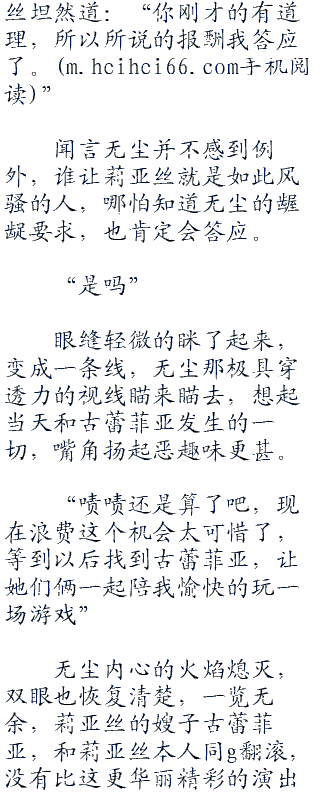 丝坦然道：“你刚才的有道
理，所以所说的报酬我答应
了。(m.hcihci66.com手机阅
读)”
闻言无尘并不感到例
外，谁让莉亚丝就是如此风
骚的人，哪怕知道无尘的龌
龊要求，也肯定会答应。
“是吗”
眼缝轻微的眯了起来，
变成一条线，无尘那极具穿
透力的视线瞄来瞄去，想起
当天和古蕾菲亚发生的一
切，嘴角扬起恶趣味更甚。
“啧啧还是算了吧，现
在浪费这个机会太可惜了，
等到以后找到古蕾菲亚，让
她们俩一起陪我愉快的玩一
场游戏”
无尘内心的火焰熄灭，
双眼也恢复清楚，一览无
余，莉亚丝的嫂子古蕾菲
亚，和莉亚丝本人同g翻滚，
没有比这更华丽精彩的演出